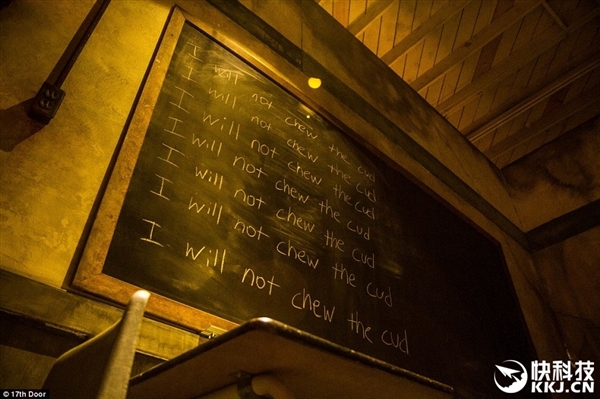 I will not chew the cud
I will not chew the cud
I will not chew the cud
I will not chew the cud
I will not chew the cud
I will not chew the cud
I will not chew the cud
© 17th Door
快科技
KKJ.CN